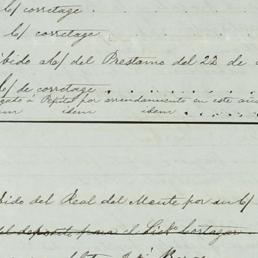 c/ corretage .
c/ corretage
ibido a c/ del Prestamo del 22 de
c/ de corretage . . . . . . . .
gado á Pepito por arrendamiento en este
idem idem . . . . .
bido del Real del Monte por su c/
del deposito para el Lic.do Cortazar